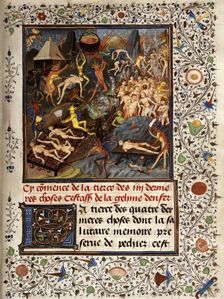 Cy cōmence de la tierce des iiij dernie
res choses Cestass̄ de la gehine denfer
La tierce des quatre der
nieres choses dont la sa
lutaire memoire pre
serue de pechier cest